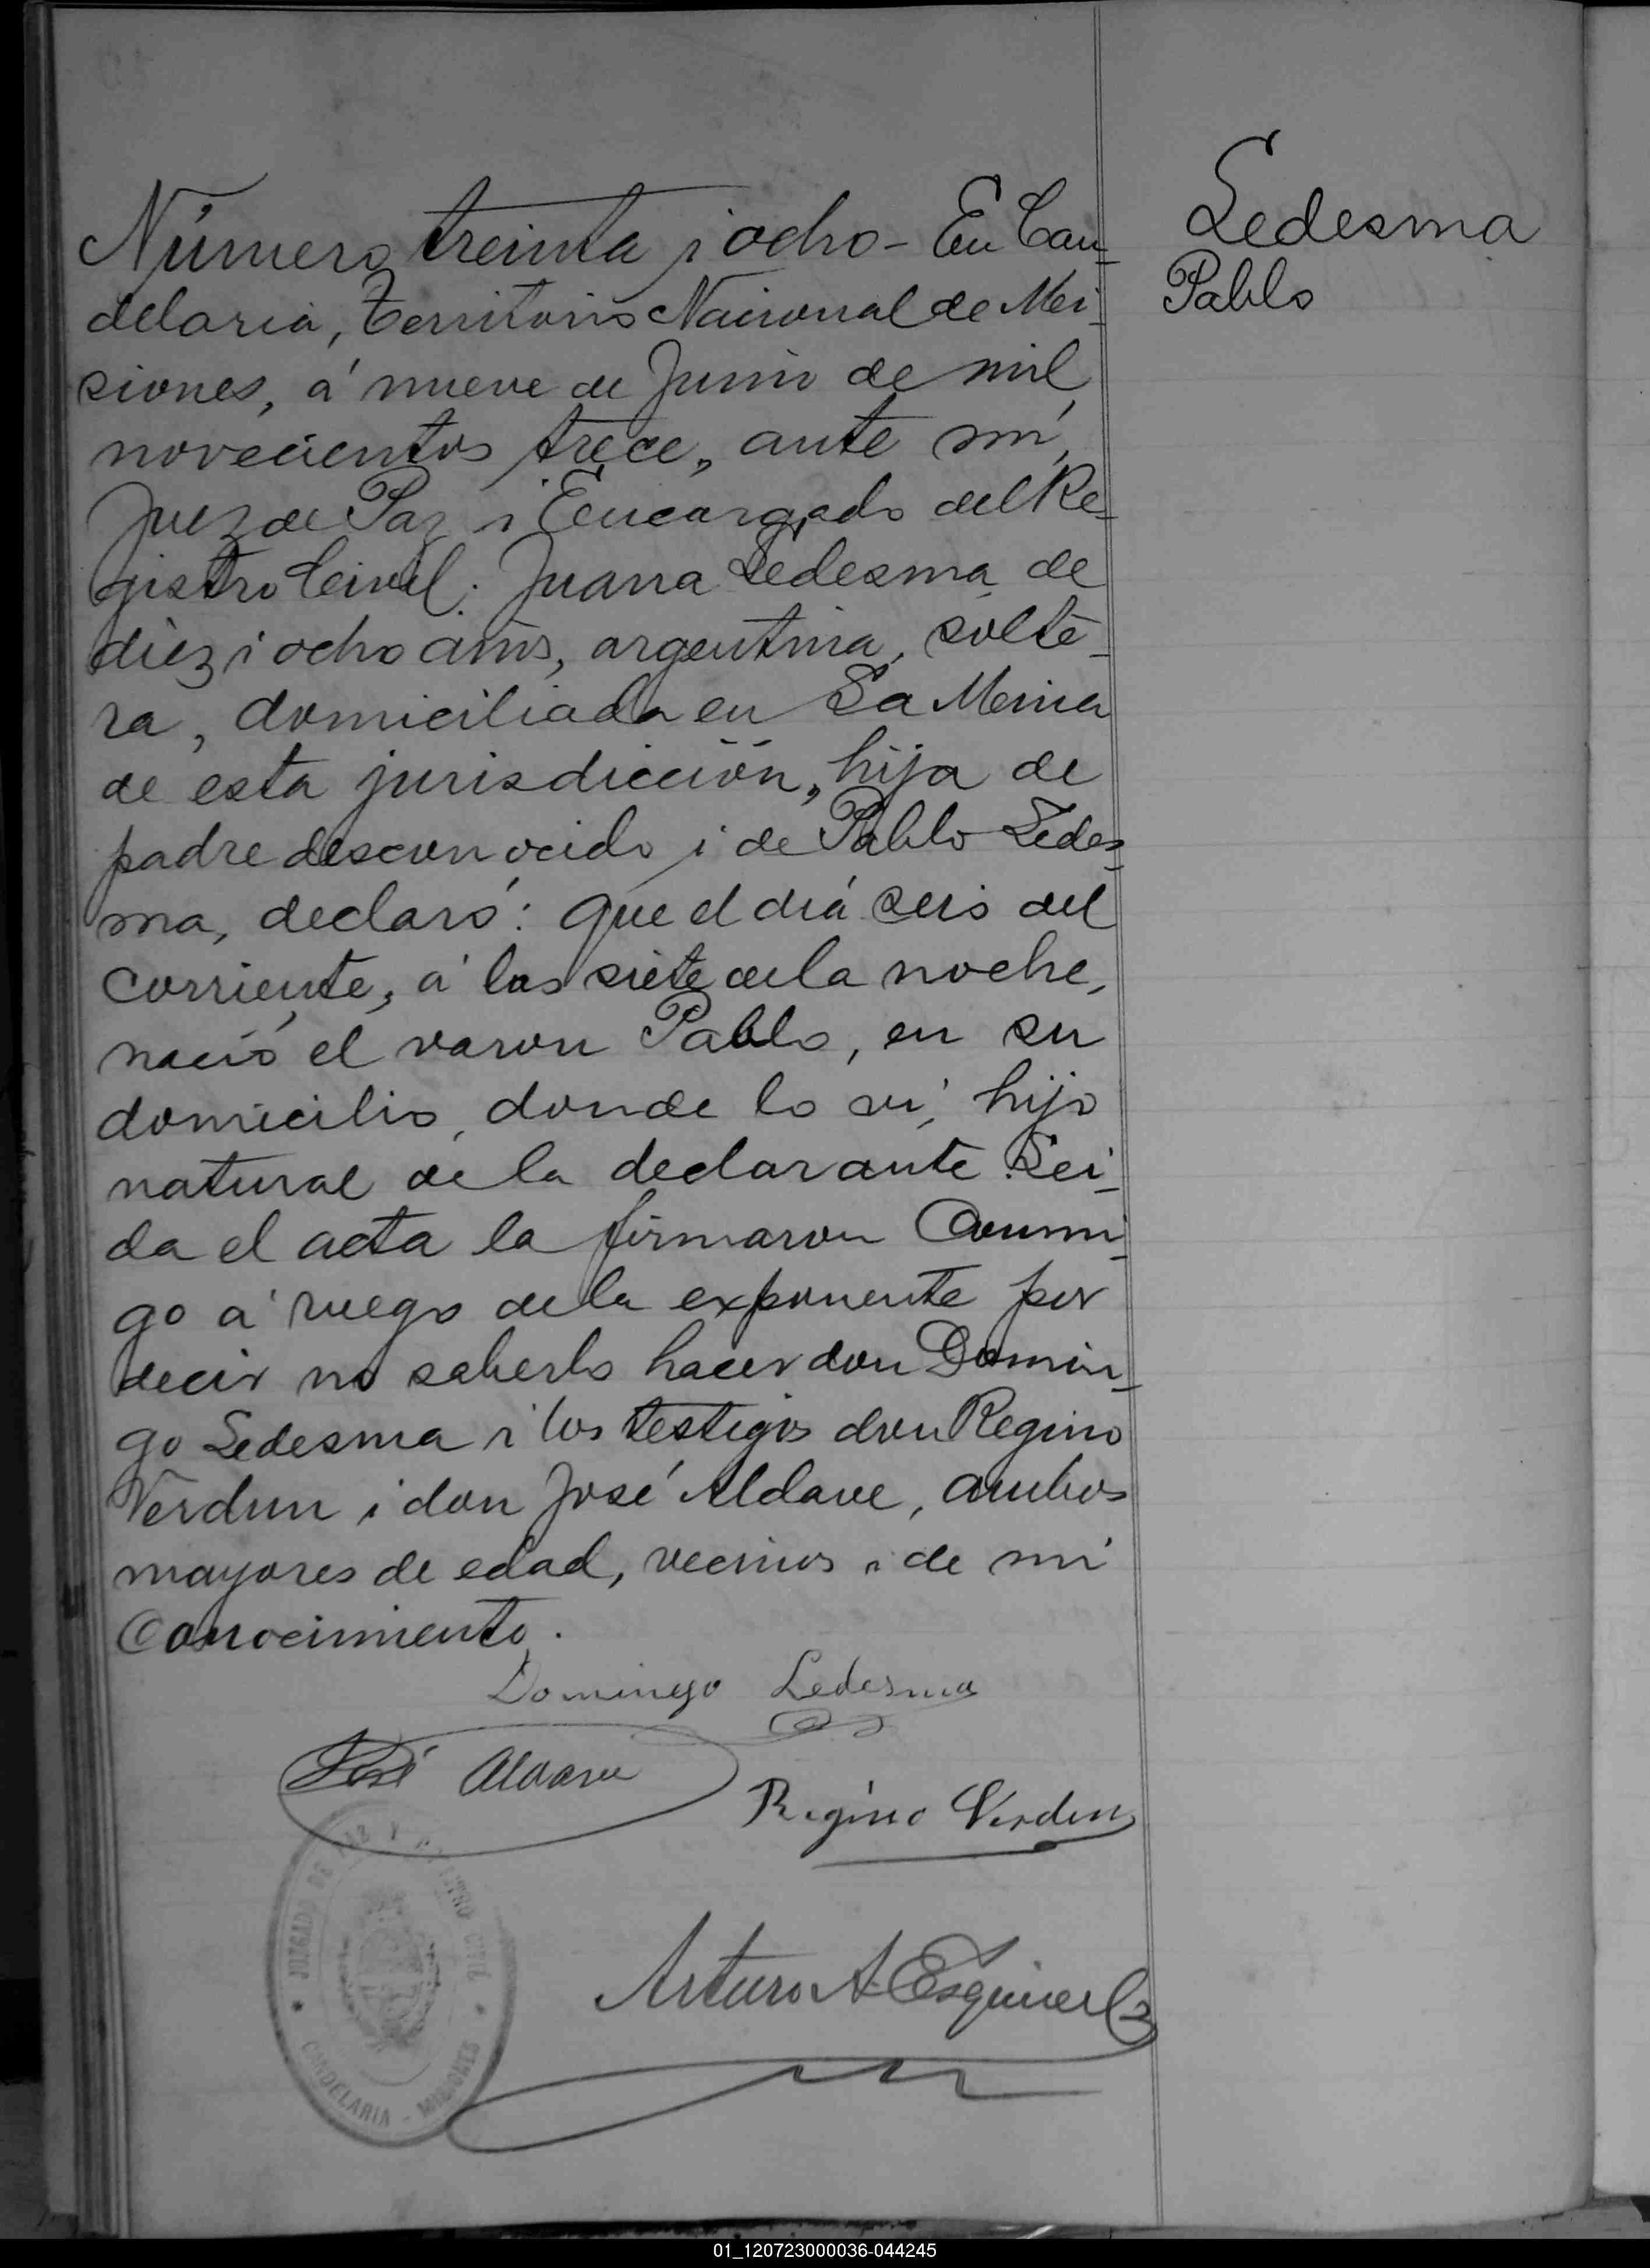 Número treinta i ocho - En Can-
delaria, Territorio Nacional de Mi-
siones, á nueve de Junio de mil
novecientos trece, ante mí,
Juez de Paz i Encargado del Re-
gistro Civil: Juana Ledesma de
diez i ocho años, argentina, solte-
ra, domiciliada en La Mina
de esta jurisdicción, hija de
padre desconocido i de Pablo Ledes-
ma, declaró: que el día seis del
corriente, á las siete de la noche,
nació el varon Pablo, en su
domicilio, donde lo vi, hijo
natural de la declarante. Lei-
da el acta la firmaron conmi-
go á ruego de la exponente por
decir no saberlo hacer don Domin-
go Ledesma i los testigos don Regino
Verdun i don José Aldave, ambos
mayores de edad, vecinos i de mi
Conocimiento.
Domingo Ledesma
José Aldave
Regino Verdun
Arturo A. Esquivel
JUZGADO DE PAZ Y REGISTRO CIVIL
CANDELARIA - MISIONES
Ledesma
Pablo
01_120723000036-044245